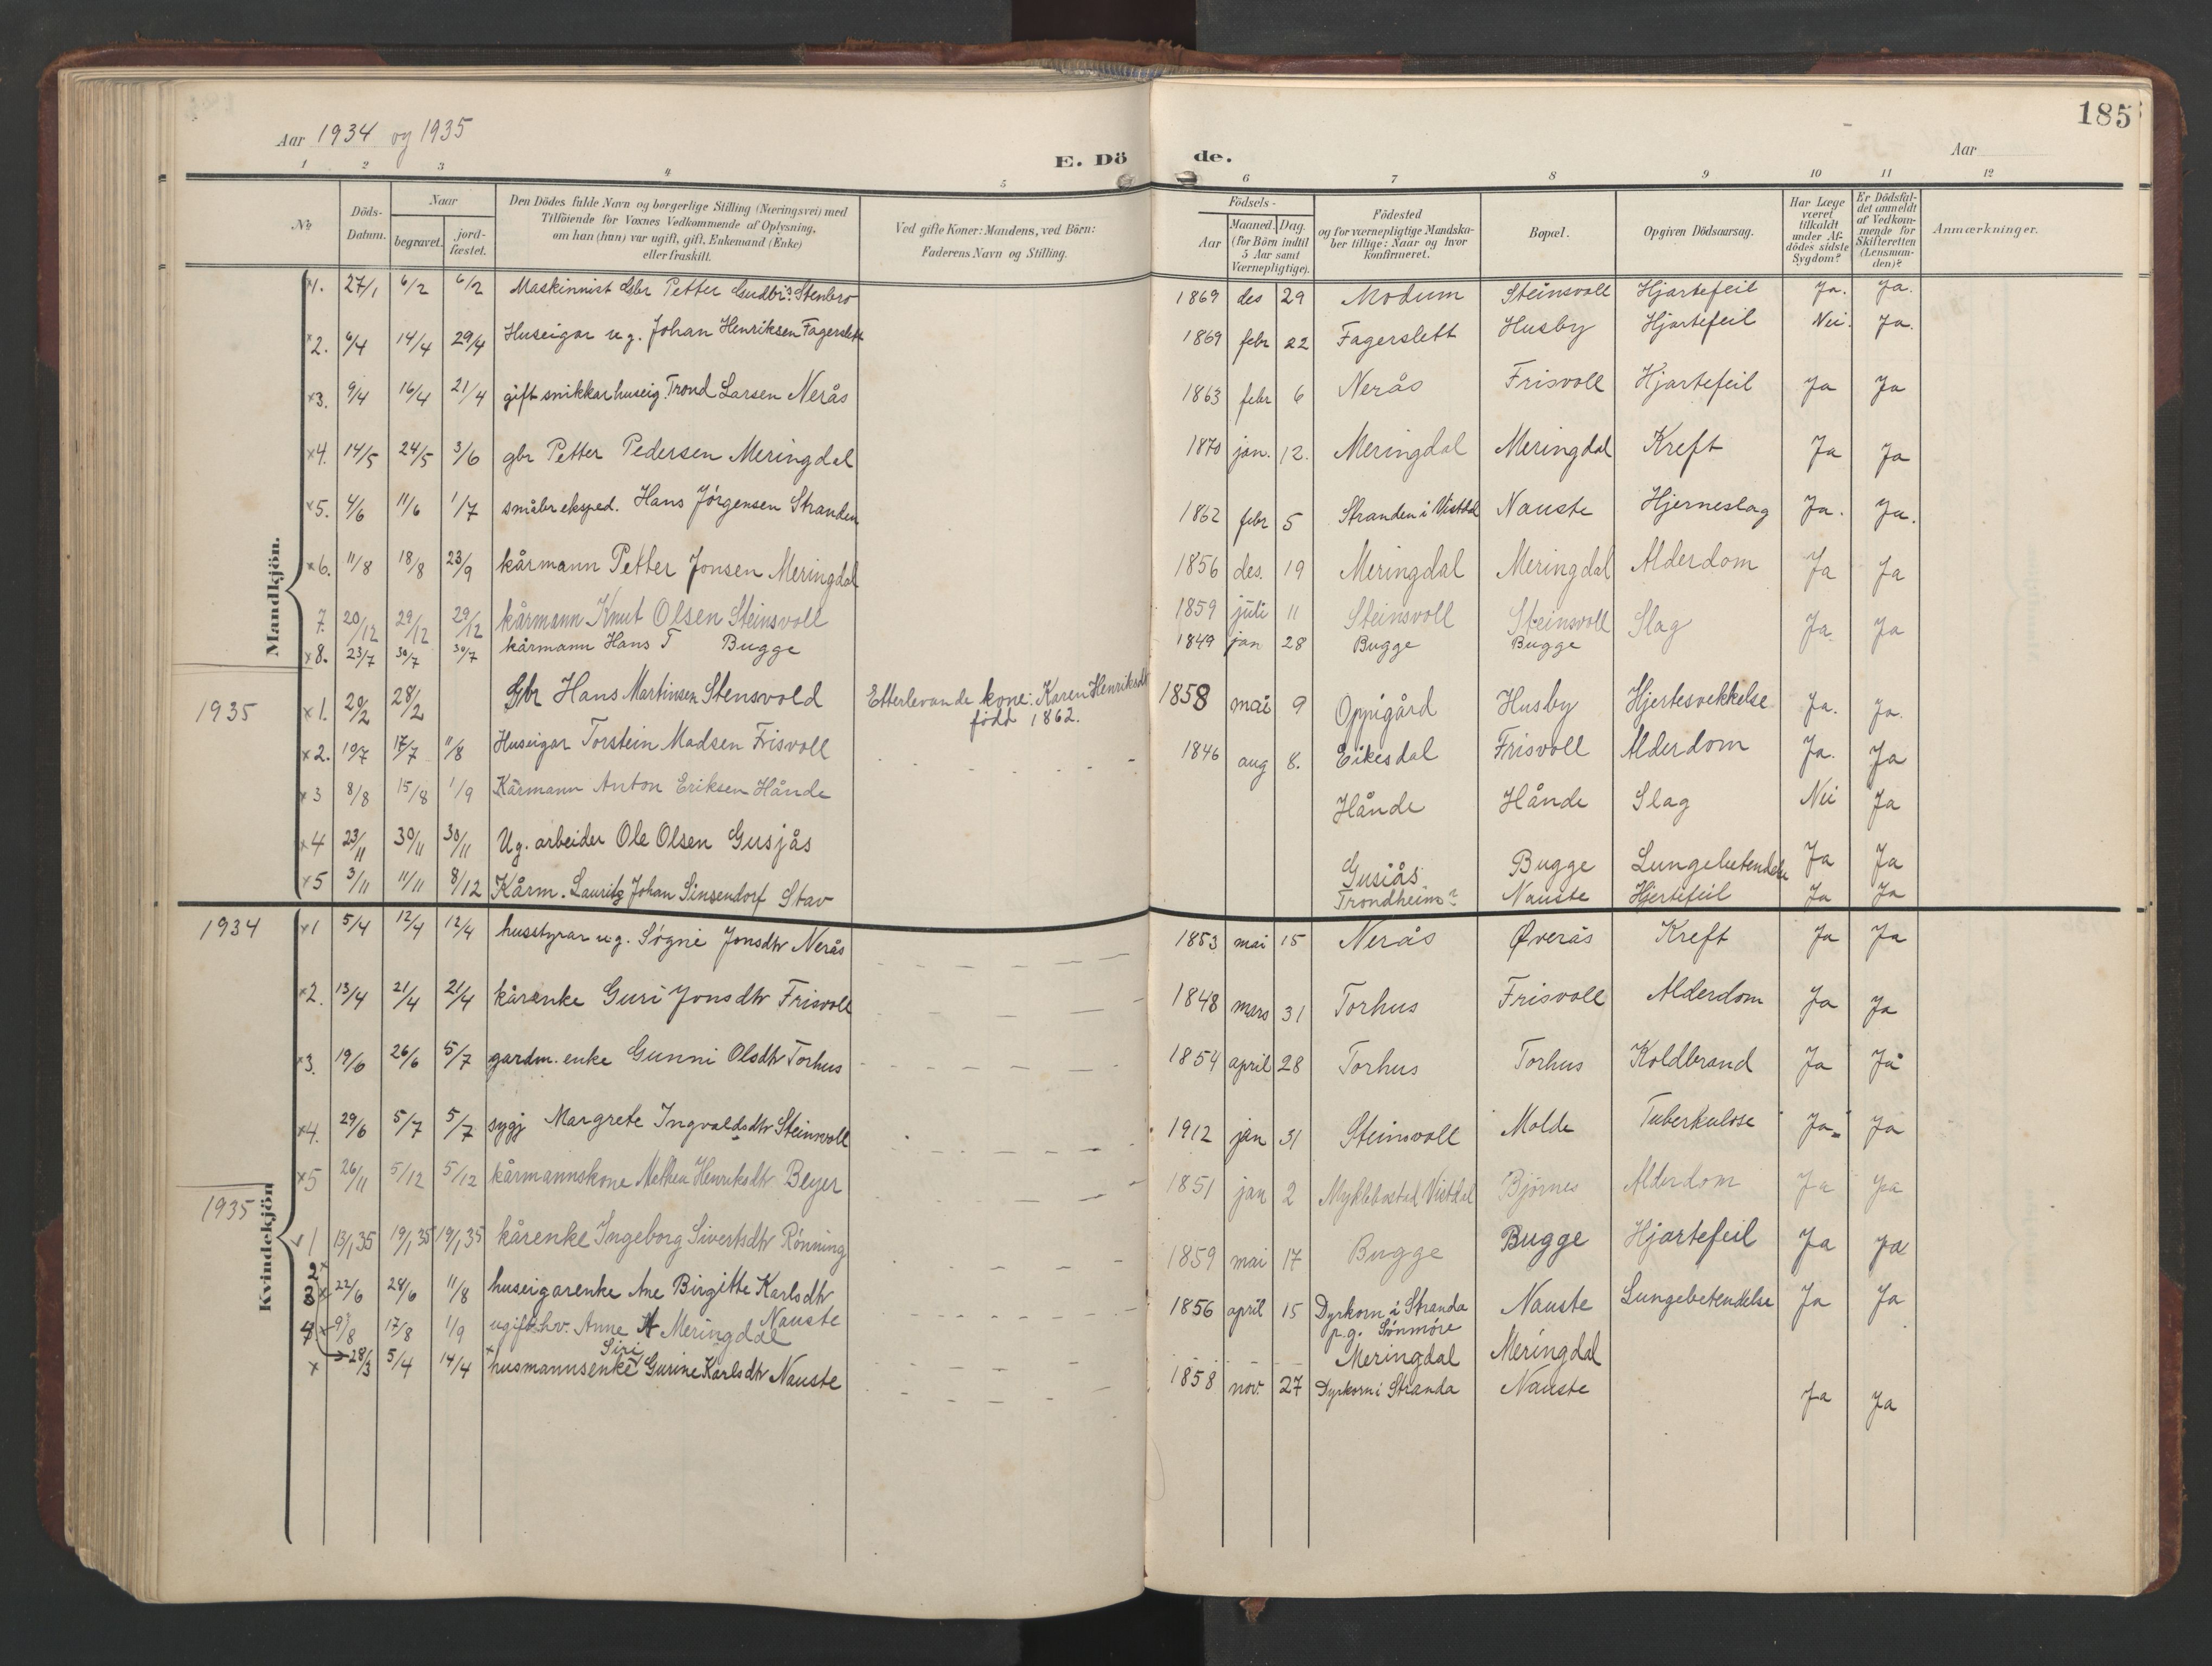 185
Aar 1934 og 1935
E. Dö de.
Aar
1 2 3 4 5 6 7 8 9 10 11 12
No.
Döds-Datum.
Naar
begravet.
jord-fæstet.
Den Dödes fulde Navn og borgerlige Stilling (Næringsvei) med
Tilföiende for Voxnes Vedkommende af Oplysning,
om han (hun) var ugift, gift, Enkemand (Enke)
eller fraskilt.
Ved gifte Koner: Mandens, ved Börn:
Faderens Navn og Stilling.
Födsels-
Aar
Maaned. Dag.
(for Börn indtil
5 Aar samt
Værnepligtige).
Födested
og for værnepligtige Mandska-
ber tillige: Naar og hvor
konfirmeret.
Bopæl.
Opgiven Dödsaarsag.
Har Læge
været
tilkaldt
under Af-
dödes sidste
Sygdom?
Er Dödsfal-
det anmeldt
af Vedkom-
mende for
Skifteretten
(Lensman-
den)?
Anmærkninger.
Mandkjön.
x1. 27/1 6/2 6/2 Maskinnist Gbr Petter Gudbr. Stenbro 1869 des 29 Modum Steinsvoll Hjartefeil Ja. Ja.
x2. 6/4 14/4 29/4 Huseigar ug. Johan Henriksen Fagerslett 1869 febr 22 Fagerslett Husby Hjartefeil Nei. Ja.
x3. 9/4 16/4 21/4 gift snikkar huseig. Trond Larsen Nerås 1863 febr 6 Nerås Frisvoll Hjartefeil Ja Ja
x4. 14/5 24/5 3/6 gbr Petter Pedersen Meringdal 1870 jan. 12. Meringdal Meringdal Kreft Ja Ja
x5. 4/6 11/6 1/7 småbr eksped. Hans Jørgensen Stranden 1862 febr 5 Stranden i Vistdal Nauste Hjerneslag Ja. Ja.
x6. 11/8 18/8 23/9 kårmann Petter Jonsen Meringdal 1856 des. 19 Meringdal Meringdal Alderdom Ja Ja
7. 20/12 29/12 29/12 kårmann Knut Olsen Steinsvoll 1859 juli 11 Steinsvoll Steinsvoll Slag Ja Ja
x8. 23/7 30/7 30/7 kårmann Hans T Bugge 1849 jan 28 Bugge Bugge
1935 x1. 20/2 28/2 Gbr Hans Martinsen Stensvold Etterlevande kone: Karen Henriksdt 1858 mai 9 Oppigård Husby Hjertesvekkelse Ja. Ja.
født 1862.
x2. 10/7 17/7 11/8 Huseigar Torstein Madsen Frisvoll 1846 aug 8. Eikesdal Frisvoll Alderdom Ja. Ja
x3 8/8 15/8 1/9 Kårmann Anton Eriksen Hånde Hånde Hånde Slag Nei Ja
x4 23/11 30/11 30/11 Ug. arbeider Ole Olsen Gusjås Gusiås Bugge Lungebetendelse Ja Ja
x5 3/11 11/11 8/12 Kårm. Lauritz Johan Sinsendorf Stav Trondheim? Nauste Hjertefeil Ja Ja
1934 x1 5/4 12/4 12/4 husstyrar ug. Søgni Jonsdtr Nerås 1853 mai 15 Nerås Øverås Kreft Ja Ja
x2. 13/4 21/4 21/4 kårenke Guri Jonsdtr Frisvoll 1848 mars 31 Torhus Frisvoll Alderdom Ja Ja
x3. 19/6 26/6 5/7 gardm. enke Gunni Olsdtr Torhus 1854 april 28 Torhus Torhus Koldbrand Ja Ja
x4. 29/6 5/7 5/7 sygj Margrete Ingvaldsdtr Steinsvoll 1912 jan 31 Steinsvoll Molde Tuberkulose Ja Ja
x5 26/11 5/12 5/12 kårmannskone Mathea Henriksdtr Beyer 1851 jan 2 Myklebostad Vistdal Bjørnes Alderdom Ja Ja
Kvindekjön
1935
1 13/1 35 19/1 35 19/1 35 kårenke Ingeborg Sivertsdtr Rønning 1859 mai 17 Bugge Bugge Hjartefeil Ja Ja
2x
3x 22/6 28/6 11/8 huseigarenke Ane Birgitte Karlsdtr Nauste 1856 april 15 Dyrkorn i Stranda p.g. Sönmöre Nauste Lungebetendelse Ja Ja
4x 9/8 17/8 1/9 ugift hv. Anne Meringdal Meringdal Meringdal
Siri
x 28/3 5/4 14/4 husmannsenke Gurine Karlsdtr Nauste 1858 nov. 27 Dyrkorn i Stranda Nauste Ja Ja